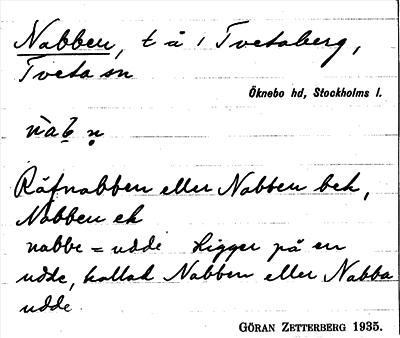 Nabben, t å i Tvetaberg,
Tveta sn
Öknebo hd, Stockholms l.
Räfnabben eller Nabben bek,
Nabben ek
nabbe = udde ligger på en
udde, kallad Nabben eller Nabba
udde
GÖRAN ZETTERBERG 1935.